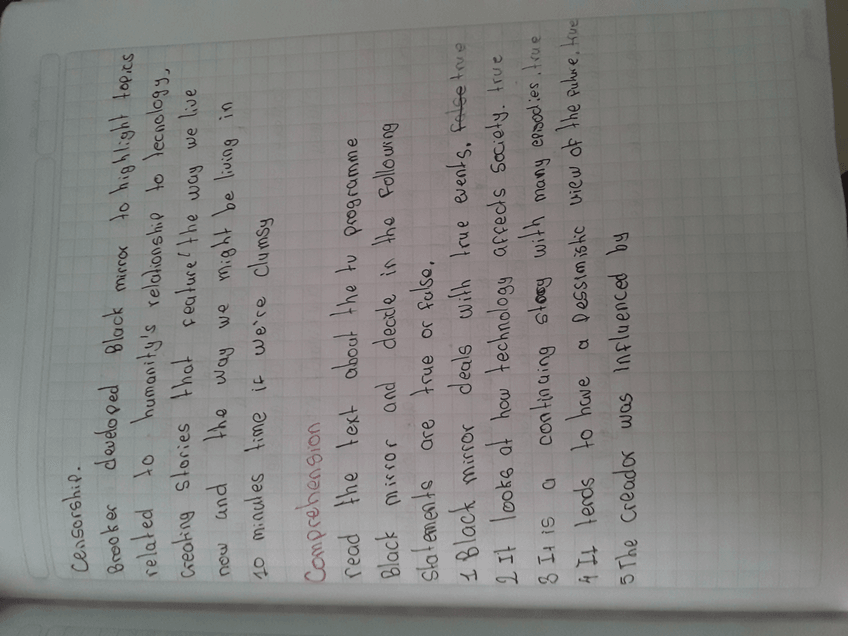 Censorship.
Brooker developed Black mirror to highlight topics
related to humanity's relationship to tecnology,
creating stories that feature "the way we live
now and the way we might be living in
10 minutes time if we're clumsy
Comprehension
read the text about the tv programme
Black mirror and decide in the Following
Statements are true or false.
1 Black mirror deals with true events. False true
2 It looks at how technology affects society. true
3 It is a continuing story with many episodies. true
4 It tends to have a pessimistic view of the future. true
5 The creador was influenced by